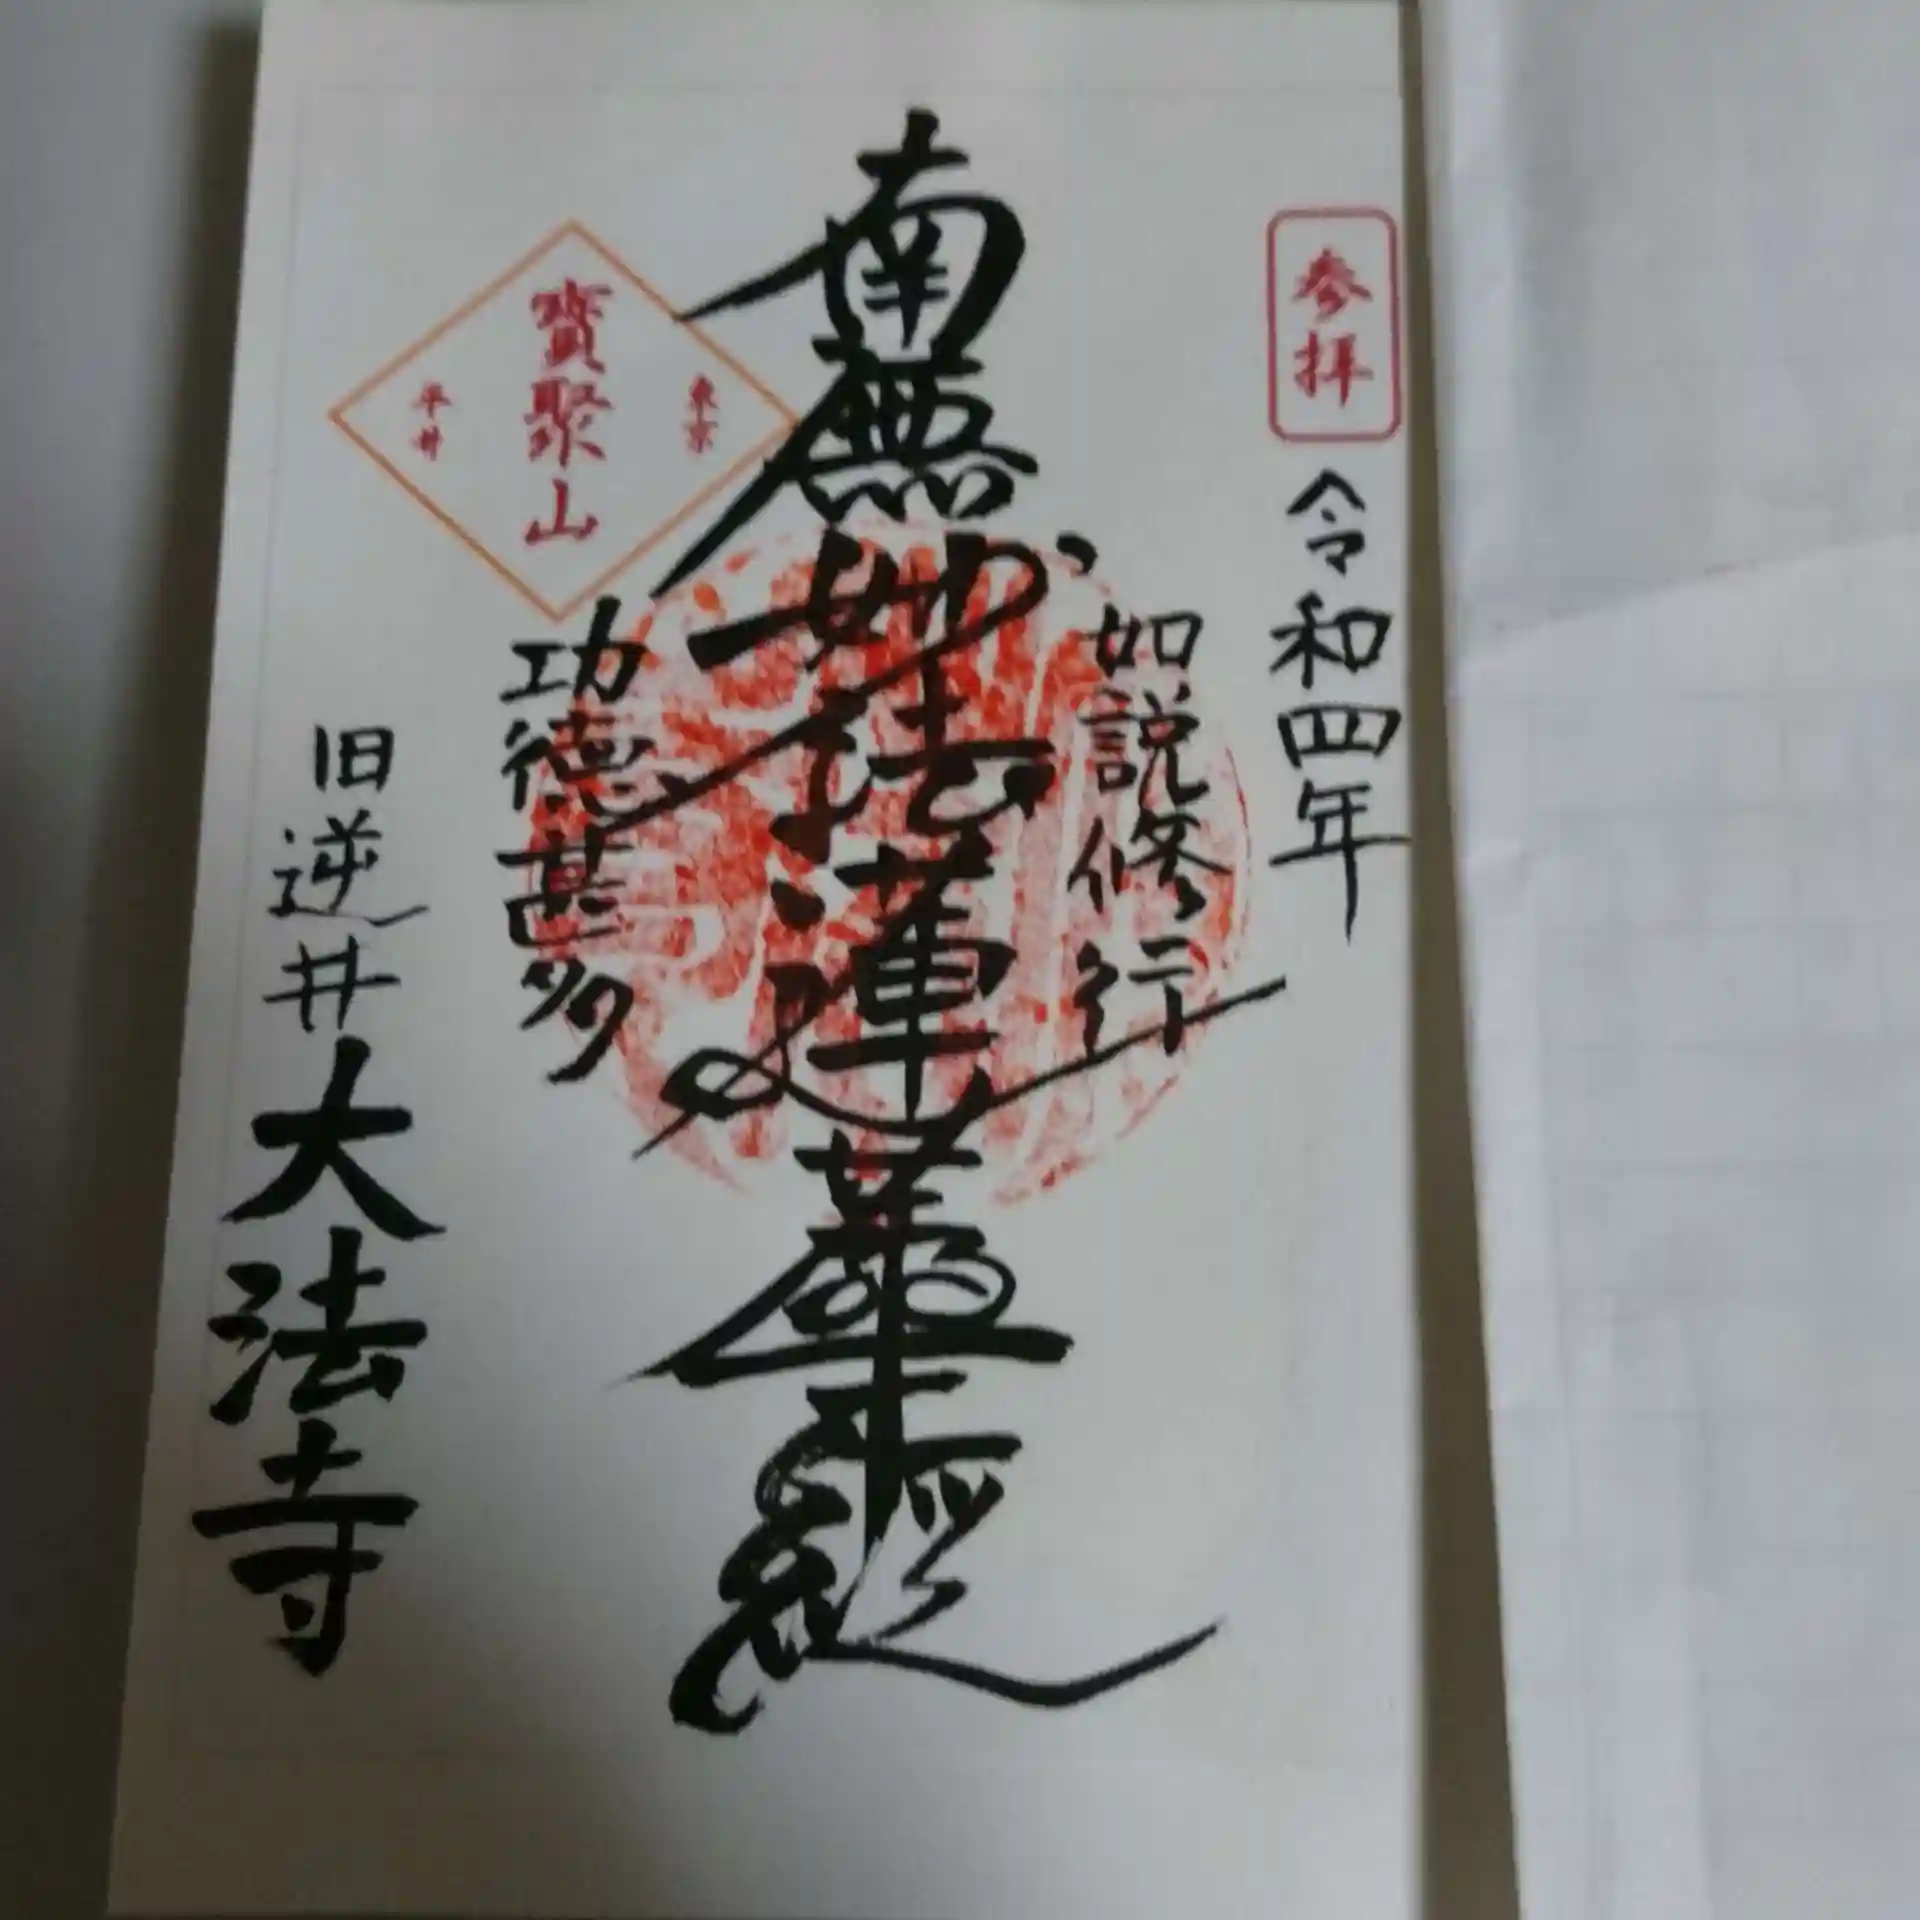 参拝
令和四年
如説修行
南無妙法蓮華経
功徳甚多
東京
寶聚山
平井
旧逆井 大法寺